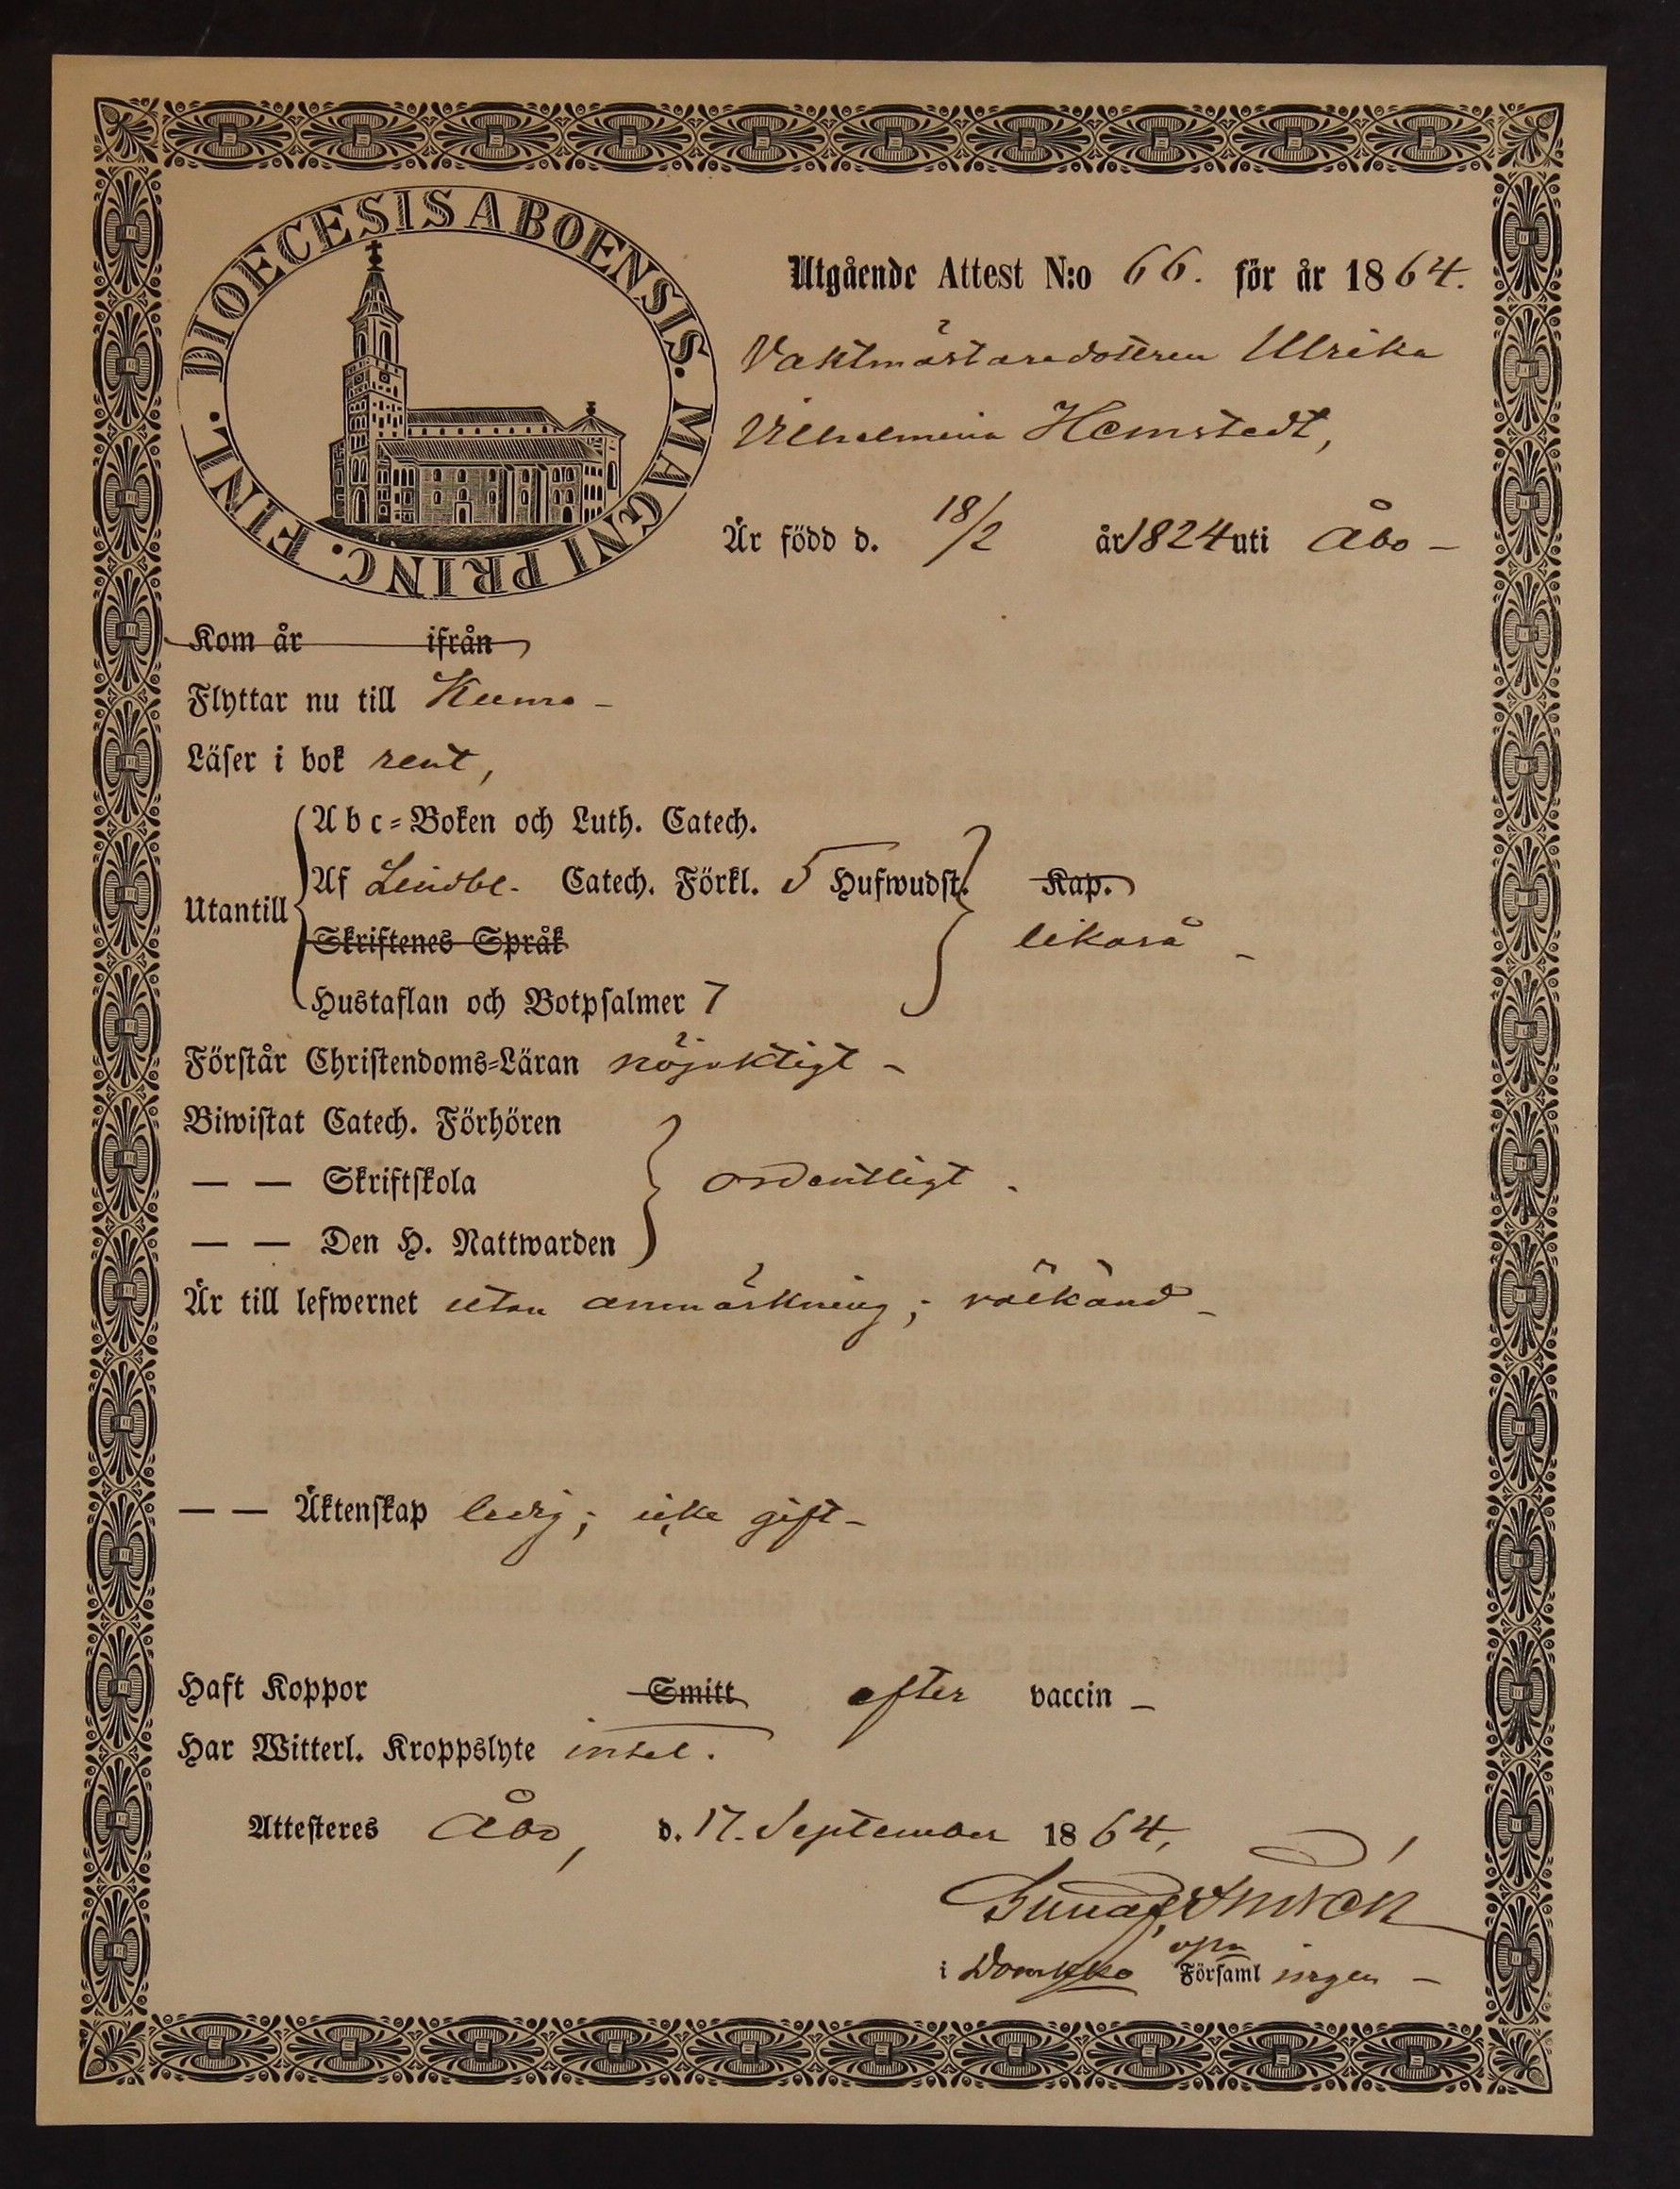 DIOECESIS ABOENSIS. MAGNI PRINC. FINL.
Utgående Attest N:o 66. för år 1864.
Vaktmästaredotteren Ulrika
Vilhelmina Hemstedt,
Är född d. 18/2 år 1824 uti Åbo –
Kom år ifrån
Flyttar nu till Kumo –
Läser i bok rent,
Utantill
Abc-Boken och Luth. Catech.
Af Lindbl. Catech. Förkl. 5 Hufwudst. Kap.
Skriftenes Språk
likaså –
Hustaflan och Botpsalmer 7
Förstår Christendoms-Läran nöjaktigt –
Biwistat Catech. Förhören
— — Skriftskola
ordentligt .
— — Den H. Nattwarden
Är till lefwernet utan anmärkning; välkänd –
— — Äktenskap ledig; icke gift –
Haft Koppor Smitt efter vaccin –
Har Witterl. Kroppslyte intet.
Attesteres Åbo, d. 17. September 1864,
i Domkko Församl ingen –